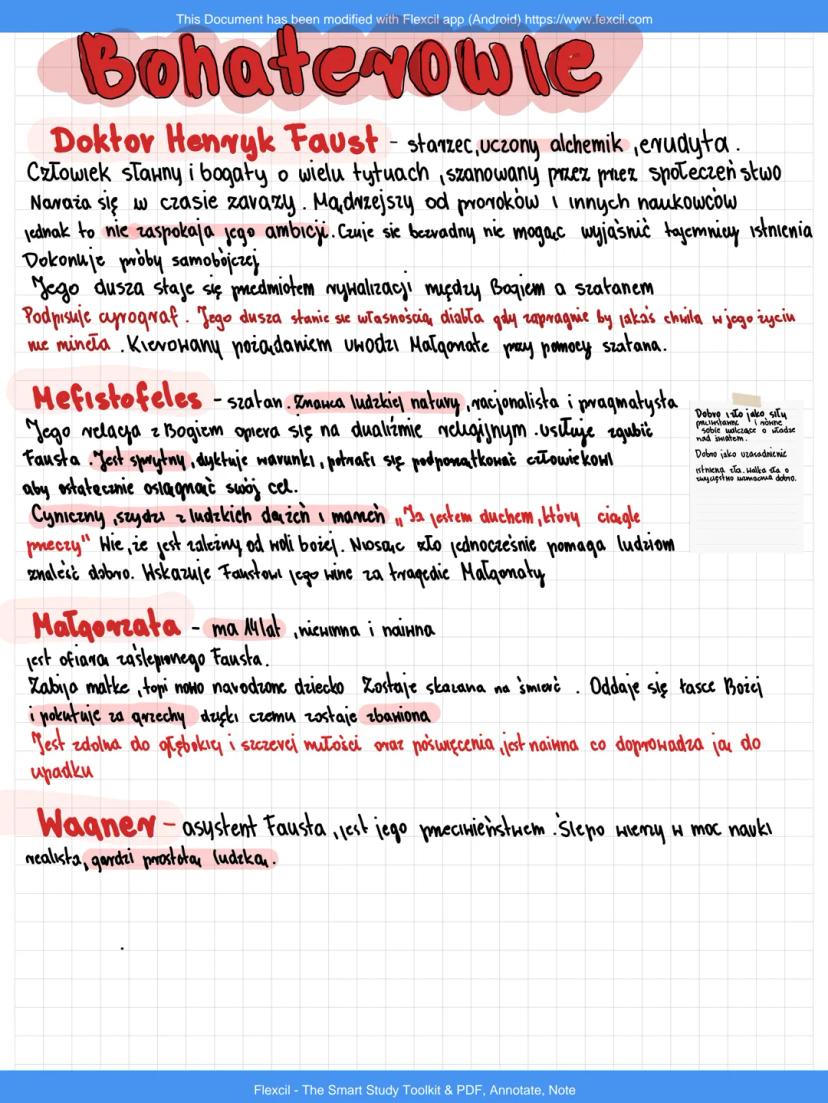 This Document has been modified with Flexcil app (Android) https://www.fexcil.com
Bohaterowie
Doktor Henryk Faust - starzec, uczony alchemik, erudyta.
Człowiek sławny i bogaty o wielu tytuach, szanowany przez przez społeczeństwo
Naraża się w czasie zarazy. Mądrzejszy od proroków i innych naukowców
jednak to nie zaspokaja jego ambicji. Czuje sie bezradny nie mogąc wyjaśnić tajemnicy istnienia
Dokonuje próby samobójczej
Jego dusza staje się przedmiotem rywalizacji między Bogiem a szatanem
Podpisuje cyrograf. Jego dusza stanie sie własnością diabła gdy zapragnie by jakaś chwila w jego życiu
nie mineła. Kierowany pożądaniem uwodzi Małgorzate przy pomocy szatana.
Mefistofeles - szatan. Znawca ludzkiej natury, racjonalista i pragmatysta
Jego relacja z Bogiem opiera się na dualiźmie religijnym. usiłuje zgubić
Fausta. Jest sprytny, dyktuje warunki, potrafi się podporządkować człowiekowi
aby ostatecznie osiągnąć swój cel.
Cyniczny, szydzi z ludzkich dążeń i marzeń „Ja jestem duchem, który ciągle
przeczy" Wie, że jest zależny od woli bożej. Niosąc zło jednocześnie pomaga ludziom
znaleźć dobro. Wskazuje Faustowi jego wine za tragedie Małgorzaty
Dobro i zło jako siły
przeciwstawne i równe
sobie walczące o władze
nad światem.
Dobro jako uzasadnienie
istnienia zła. Walka zła o
zwycięstwo wzmacnia dobro.
Małgorzata - ma 14 lat, niewinna i naiwna
jest ofiarą zaślepionego Fausta.
Zabija matke, topi nowo narodzone dziecko Zostaje skazana na śmierć. Oddaje się łasce Bożej
i pokutuje za grzechy dzięki czemu zostaje zbawiona
Jest zdolna do głębokiej i szczerej miłości oraz poświęcenia, jest naiwna co doprowadza ją do
upadku
Wagner - asystent Fausta, jest jego przeciwieństwem. Ślepo wierzy w moc nauki
realista, gardzi prostotą ludzką.
Flexcil - The Smart Study Toolkit & PDF, Annotate, Note